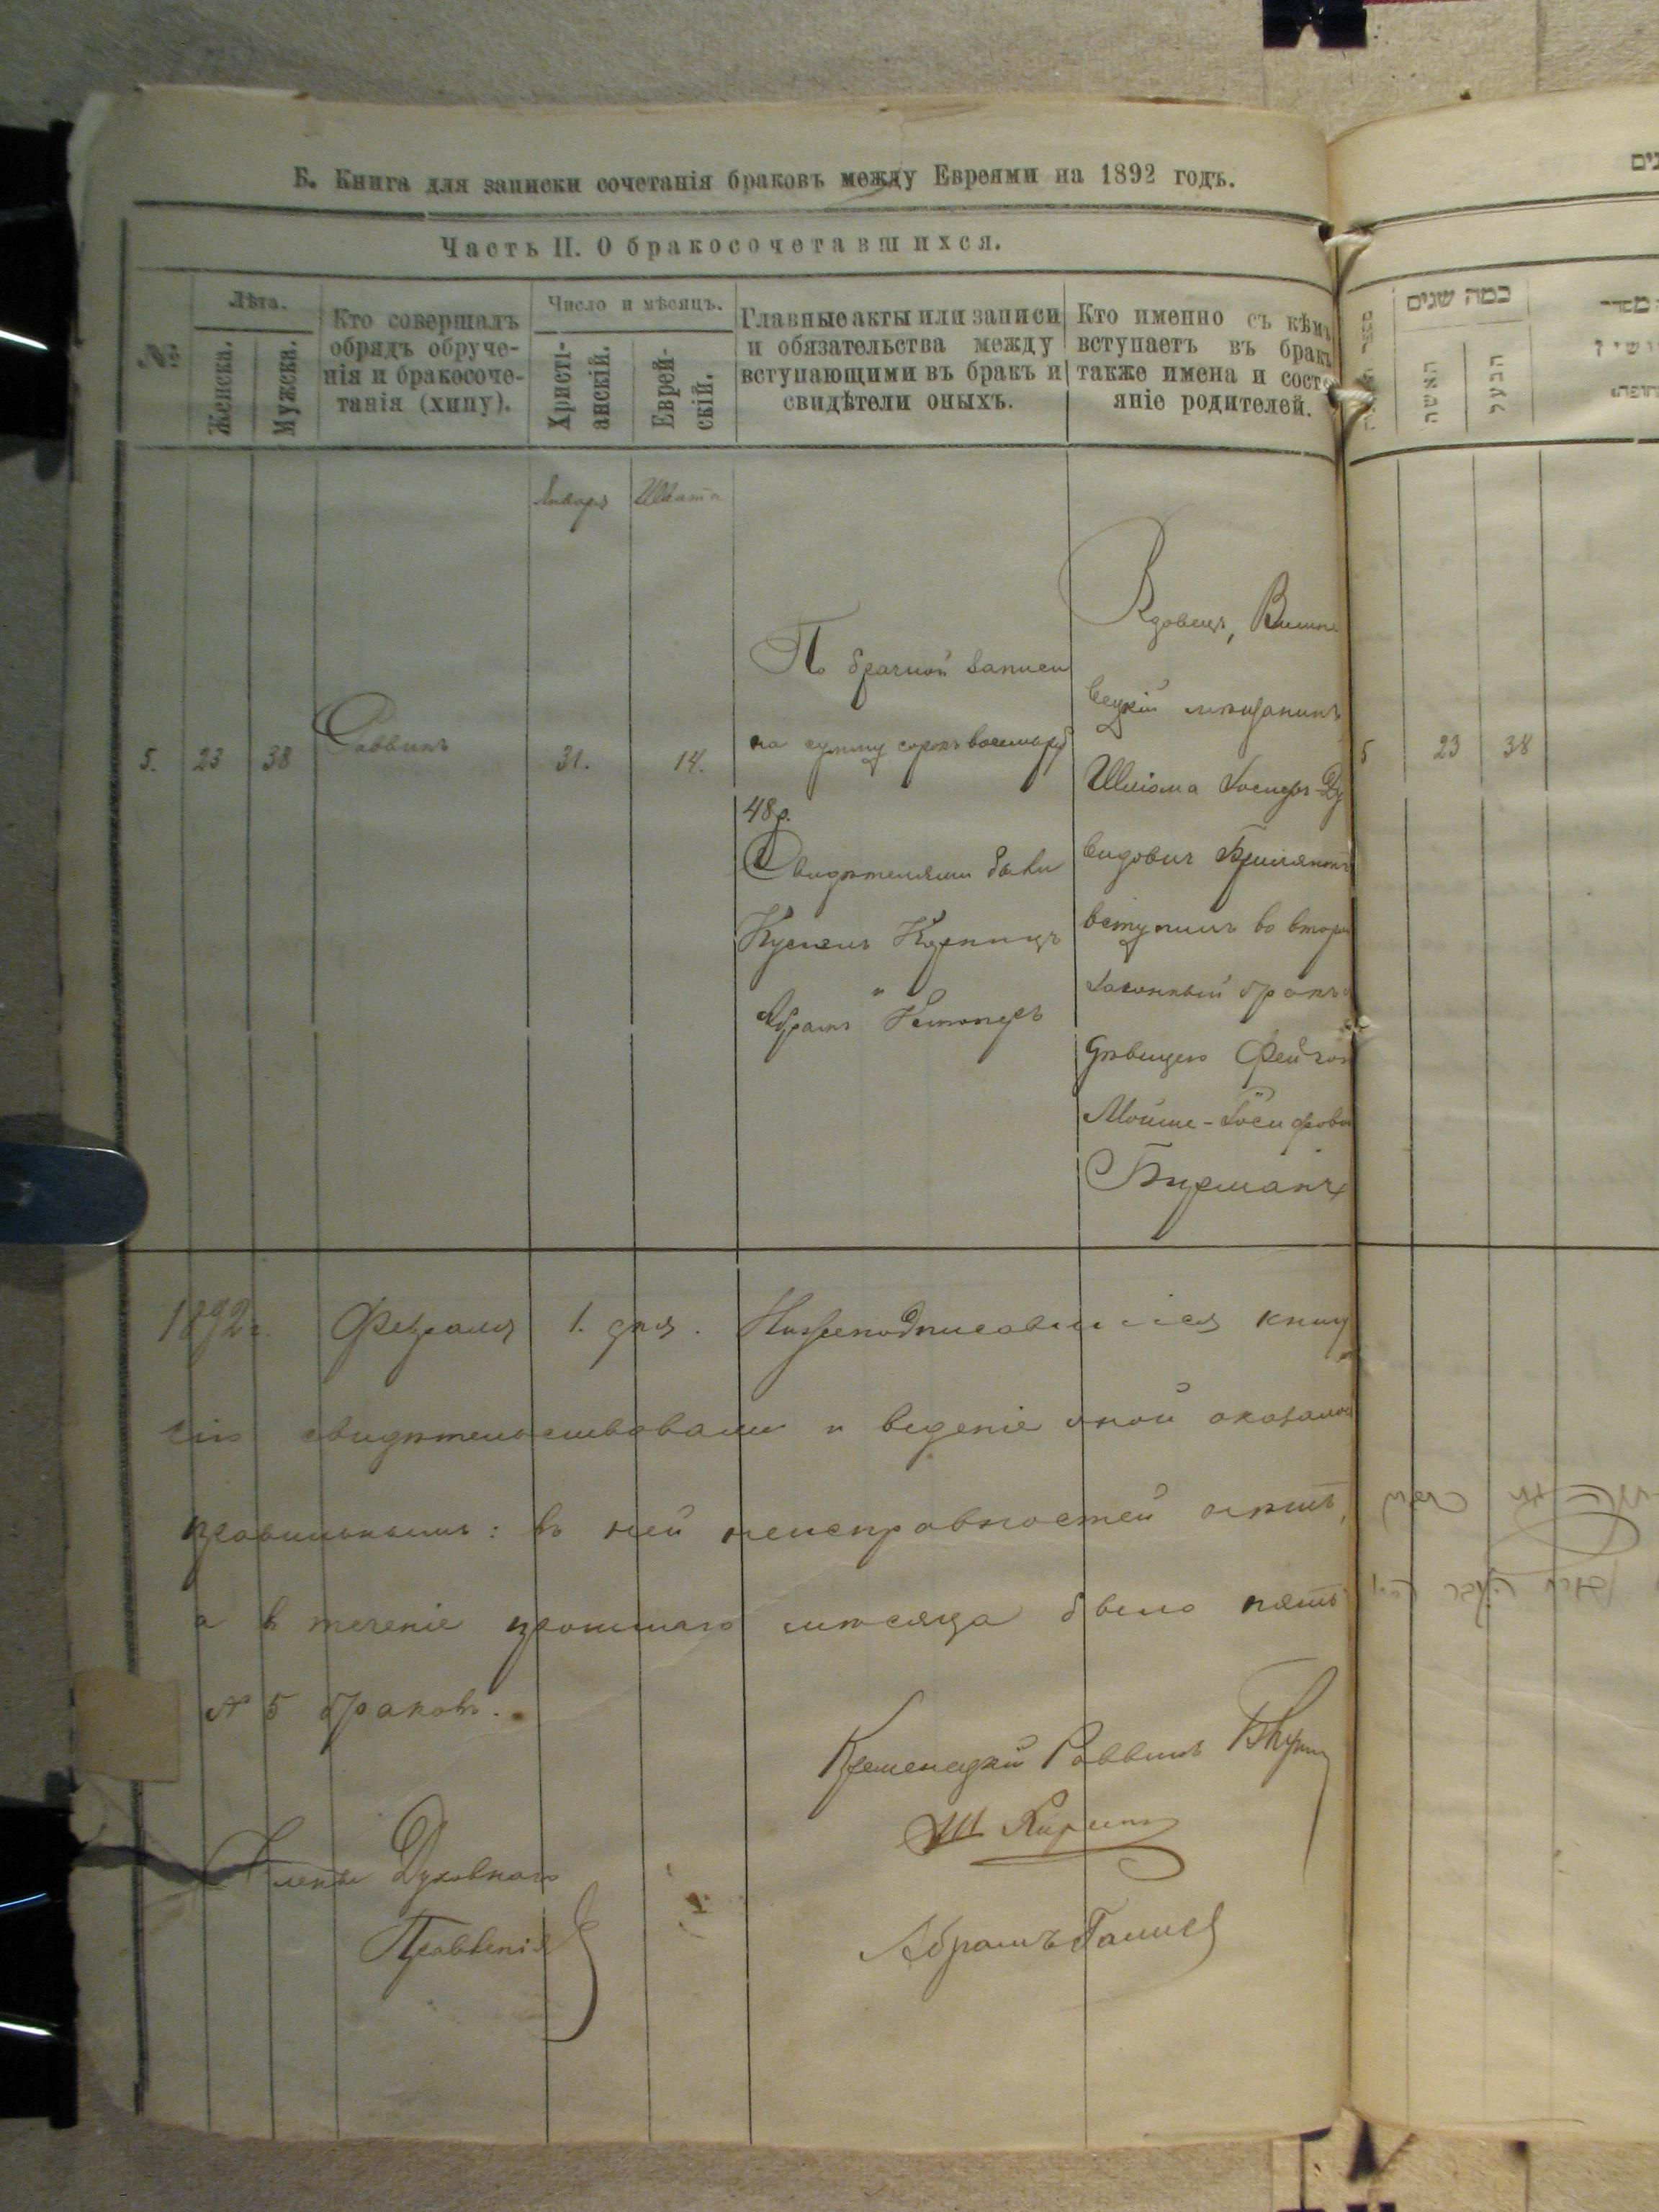 Б. Книга для записки сочетанія браковъ между Евреями на 1892 годъ.
Часть II. О бракосочетавшихся.
№
Лѣта.
Женска.
Мужска.
Кто совершалъ
обрядъ обруче-
нія и бракосоче-
танія (хипу).
Число и мѣсяцъ.
Христі-
анскій.
Еврей-
скій.
Главные акты или записи
и обязательства между
вступающими въ бракъ и
свидѣтели оныхъ.
Кто именно съ кѣмъ
вступаетъ въ бракъ
также имена и состо
яніе родителей.
כמה שנים
האשה
הבעל
Январь
Шватъ
5.
23
38
Раввинъ
31.
14.
По брачной записи
на сумму сорокъ восемь руб
48 р.
Свидѣтелями были
Абрамъ
Вдовецъ, Вишне
вецкій мѣщанинъ
Шліома Іосифъ
вступилъ во второ
законный бракъ
дѣвицею Фейгою
Мойше-Іосифово
Бирманъ
5
23
38
1892 г. Февраля 1. дня. Нижеподписавшіеся книгу
сію свидѣтельствовали и веденіе оной оказалось
правильнымъ: въ ней неисправностей нѣтъ,
а въ теченіе прошлаго мѣсяца было пять
№ 5 браковъ.
Кременецкій Раввинъ
Члены Духовнаго
Правленія
Ш
Абрамъ